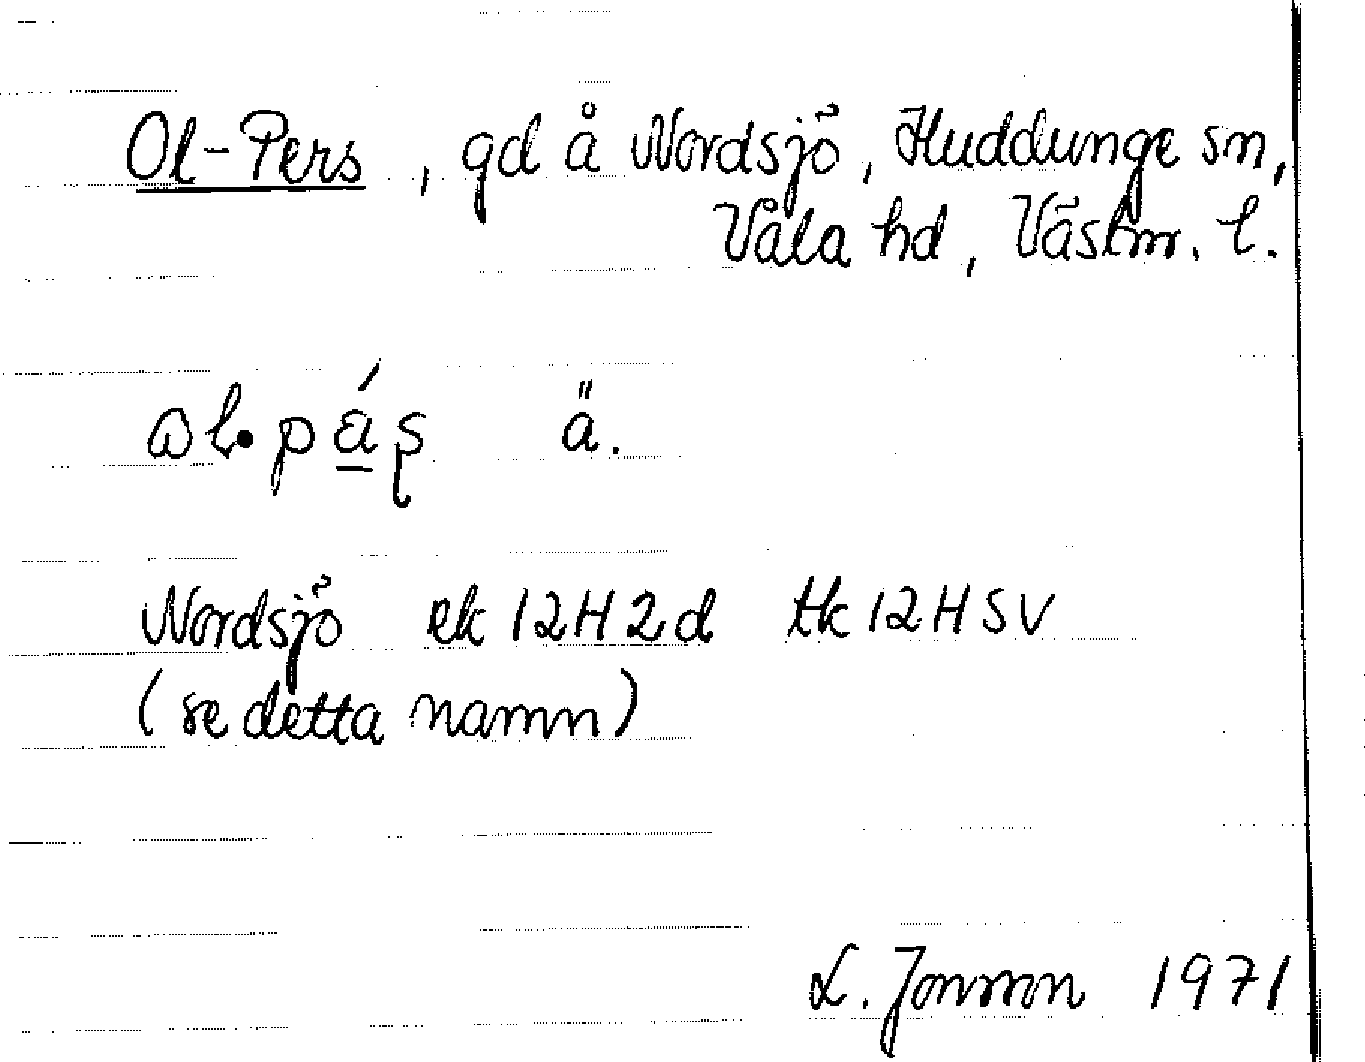 Ol-Pers, gd å Nordsjö, Huddunge sn,
Våla hd, Västm. l.
ä.
Nordsjö ek 12H2d tk 12HSV
(se detta namn)
L. Jonsson 1971